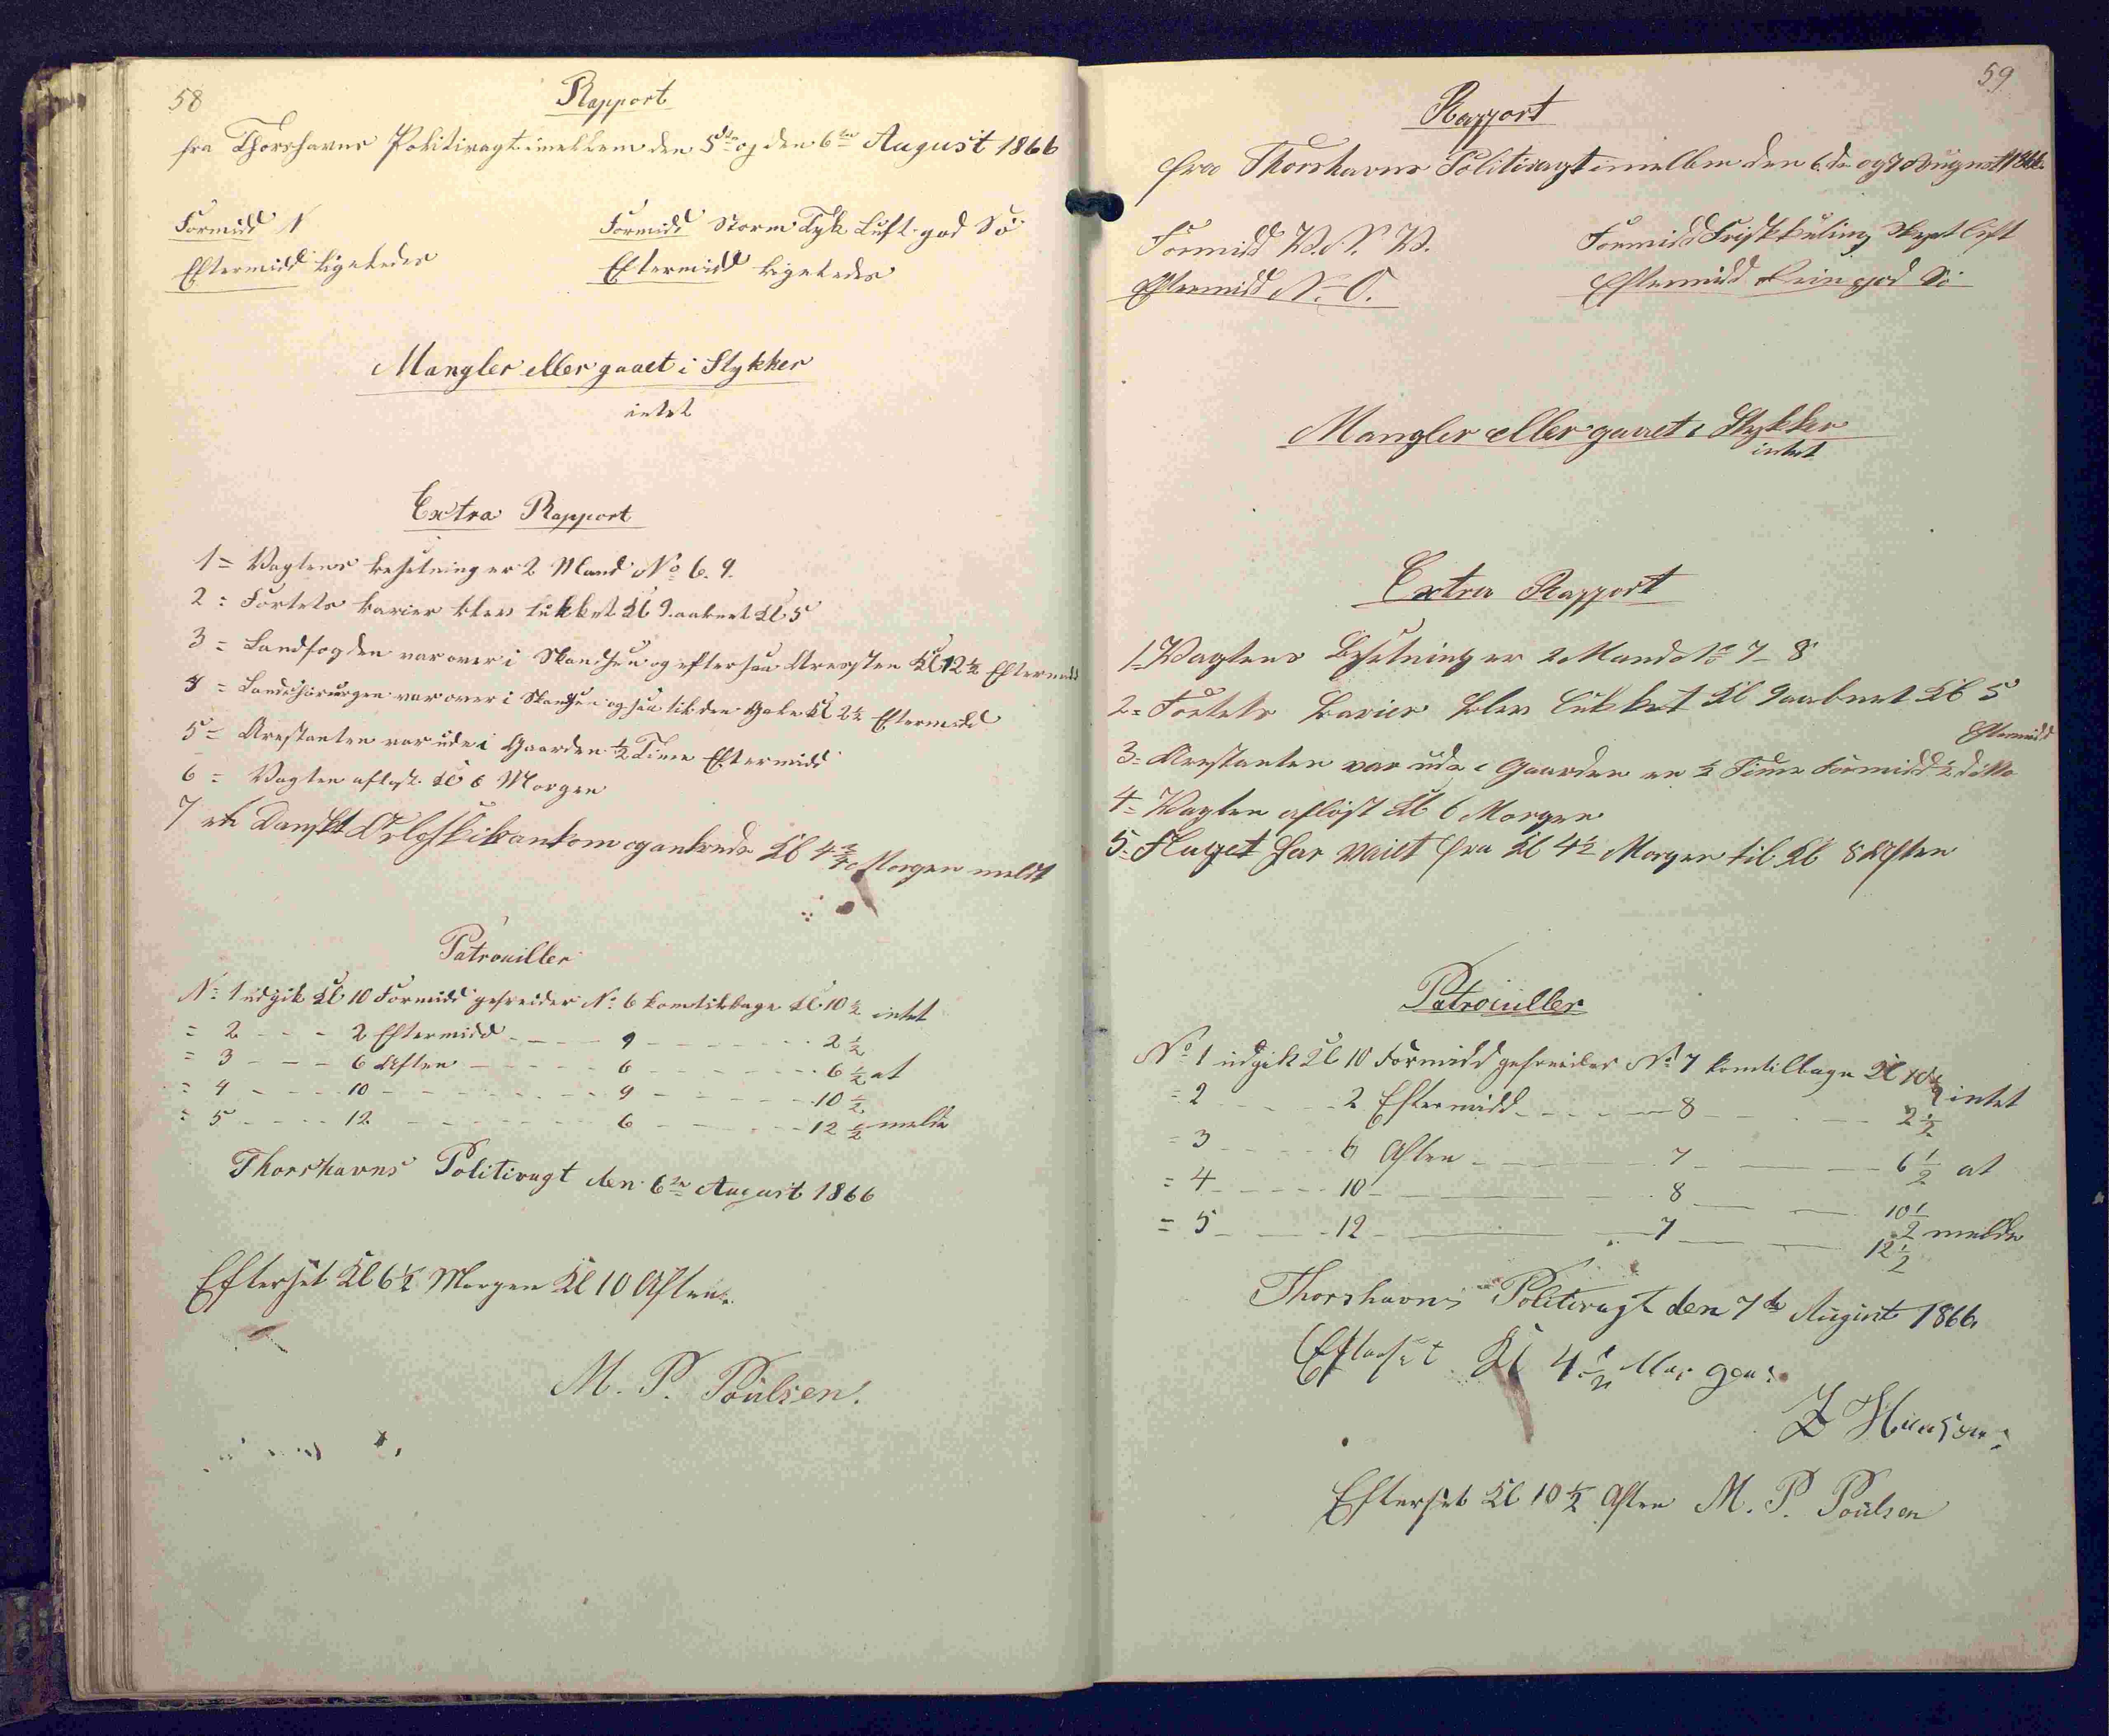 58
Rapport
fra Thorshavns Politivagt imellem den 5te og den 6te August 1866
Formidd N
Formidd Storm Tyk Luft god Sö
Eftermidd ligeledes
Eftermidd ligeledes
Mangler eller gaaet i Stykker
intet
Extra Rapport
1 = Vagtens besetning er 2 Mand No 6. 9.
2 = Fortets barier blev lukket Kl 9 aabnet Kl 5
3 = Landfogden var over i Skandsen og eftersaa Aresten Kl 12 1/2 Eftermidd
4 = Landchirurgen var over i Skansen og saa til den Kl 2 1/2 Eftermidd
5 = Arestanten var ude i Gaarden 1/2 Time Eftermidd
6 = Vagten aflöst Kl 6 Morgen
7 et Danskt Orlogskib ankom og ankrede Kl 4 3/4 Morgen meldt
Patrouiller
No 1 udgik Kl 10 Formidd gefreider No 6 kom tilbage Kl 10 1/2 intet
= 2 - - - 2 Eftermidd - - - - 9 - - - - - - - 2 1/2
= 3 - - - 6 Aften - - - - - 6 - - - - - - - 6 1/2 at
= 4 - - - - 10 - - - - - - - - 9 - - - - - - - 10 1/2
= 5 - - - - 12 - - - - - - - - 6 - - - - - - - 12 1/2 melde
Thorshavns Politivagt den 6te August 1866
Efterset Kl 6 1/2 Morgen Kl 10 Aften
M. P. Poulsen.
59
Rapport
fra Thorshavns Politivagt imellem den 6te og 7 August 1866
Formidd V. N. V.
Formidd Frisk kuling Tyk luft
Eftermidd N. O.
Eftermidd god Sö
Mangler eller gaaet i Stykker
intet
Extra Rapport
1 Vagtens Besetning er 2 Mand No 7 - 8
2 = Fortets barier blev lukket Kl 9 aabnet Kl 5
Eftermidd
3 = Arestanten var ude i Gaarden en 1/2 Time Formidd 1/2 ditto
4 = Vagten aflöst Kl 6 Morgen
5 = Flaget har vaiet fra Kl 4 1/2 Morgen til Kl 8 Aften
Patrouiller
No 1 udgik Kl 10 Formidd gefreider No 7 kom tilbage Kl 10 1/2 intet
= 2 - - - - - 2 Eftermidd - - - - 8 - - - - 2 1/2
= 3 - - - - - 6 Aften - - - - 7 - - - - 6 1/2 at
= 4 - - - - - 10 - - - - 8 - - - - 10 1/2
= 5 - - - - - 12 - - - - 7 - - - - 12 1/2 melde
Thorshavns Politivagt den 7de August 1866
Efterset Kl 4 1/2 Morgen
Efterset Kl 10 1/2 Aften M. P. Poulsen